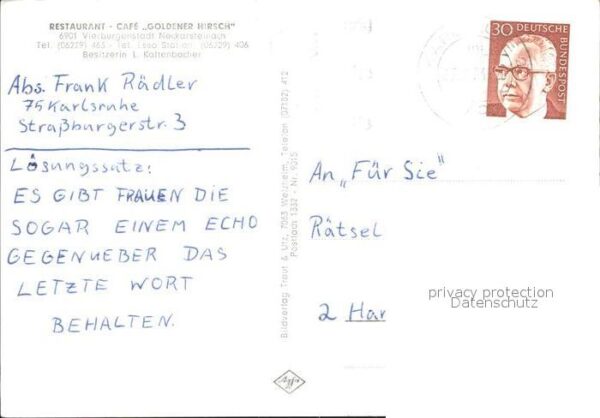 RESTAURANT - CAFÉ „GOLDENER HIRSCH"
6901 Vierburgenstadt Neckarsteinach
Tel. (06229) 465 - Tel. Esso Station (06229) 406
Besitzerin L. Kaltenbacher
Abs. Frank Rädler
75 Karlsruhe
Straßburgerstr. 3
Lösungssatz:
ES GIBT FRAUEN DIE
SOGAR EINEM ECHO
GEGENUEBER DAS
LETZTE WORT
BEHALTEN.
Bildverlag Traut & Utz, 7063 Welzheim, Telefon (07182) 412
Postfach 1332 - Nr. 9015
Agfa
30 DEUTSCHE
BUNDESPOST
An „Für Sie"
Rätsel
2 Har
privacy protection
Datenschutz